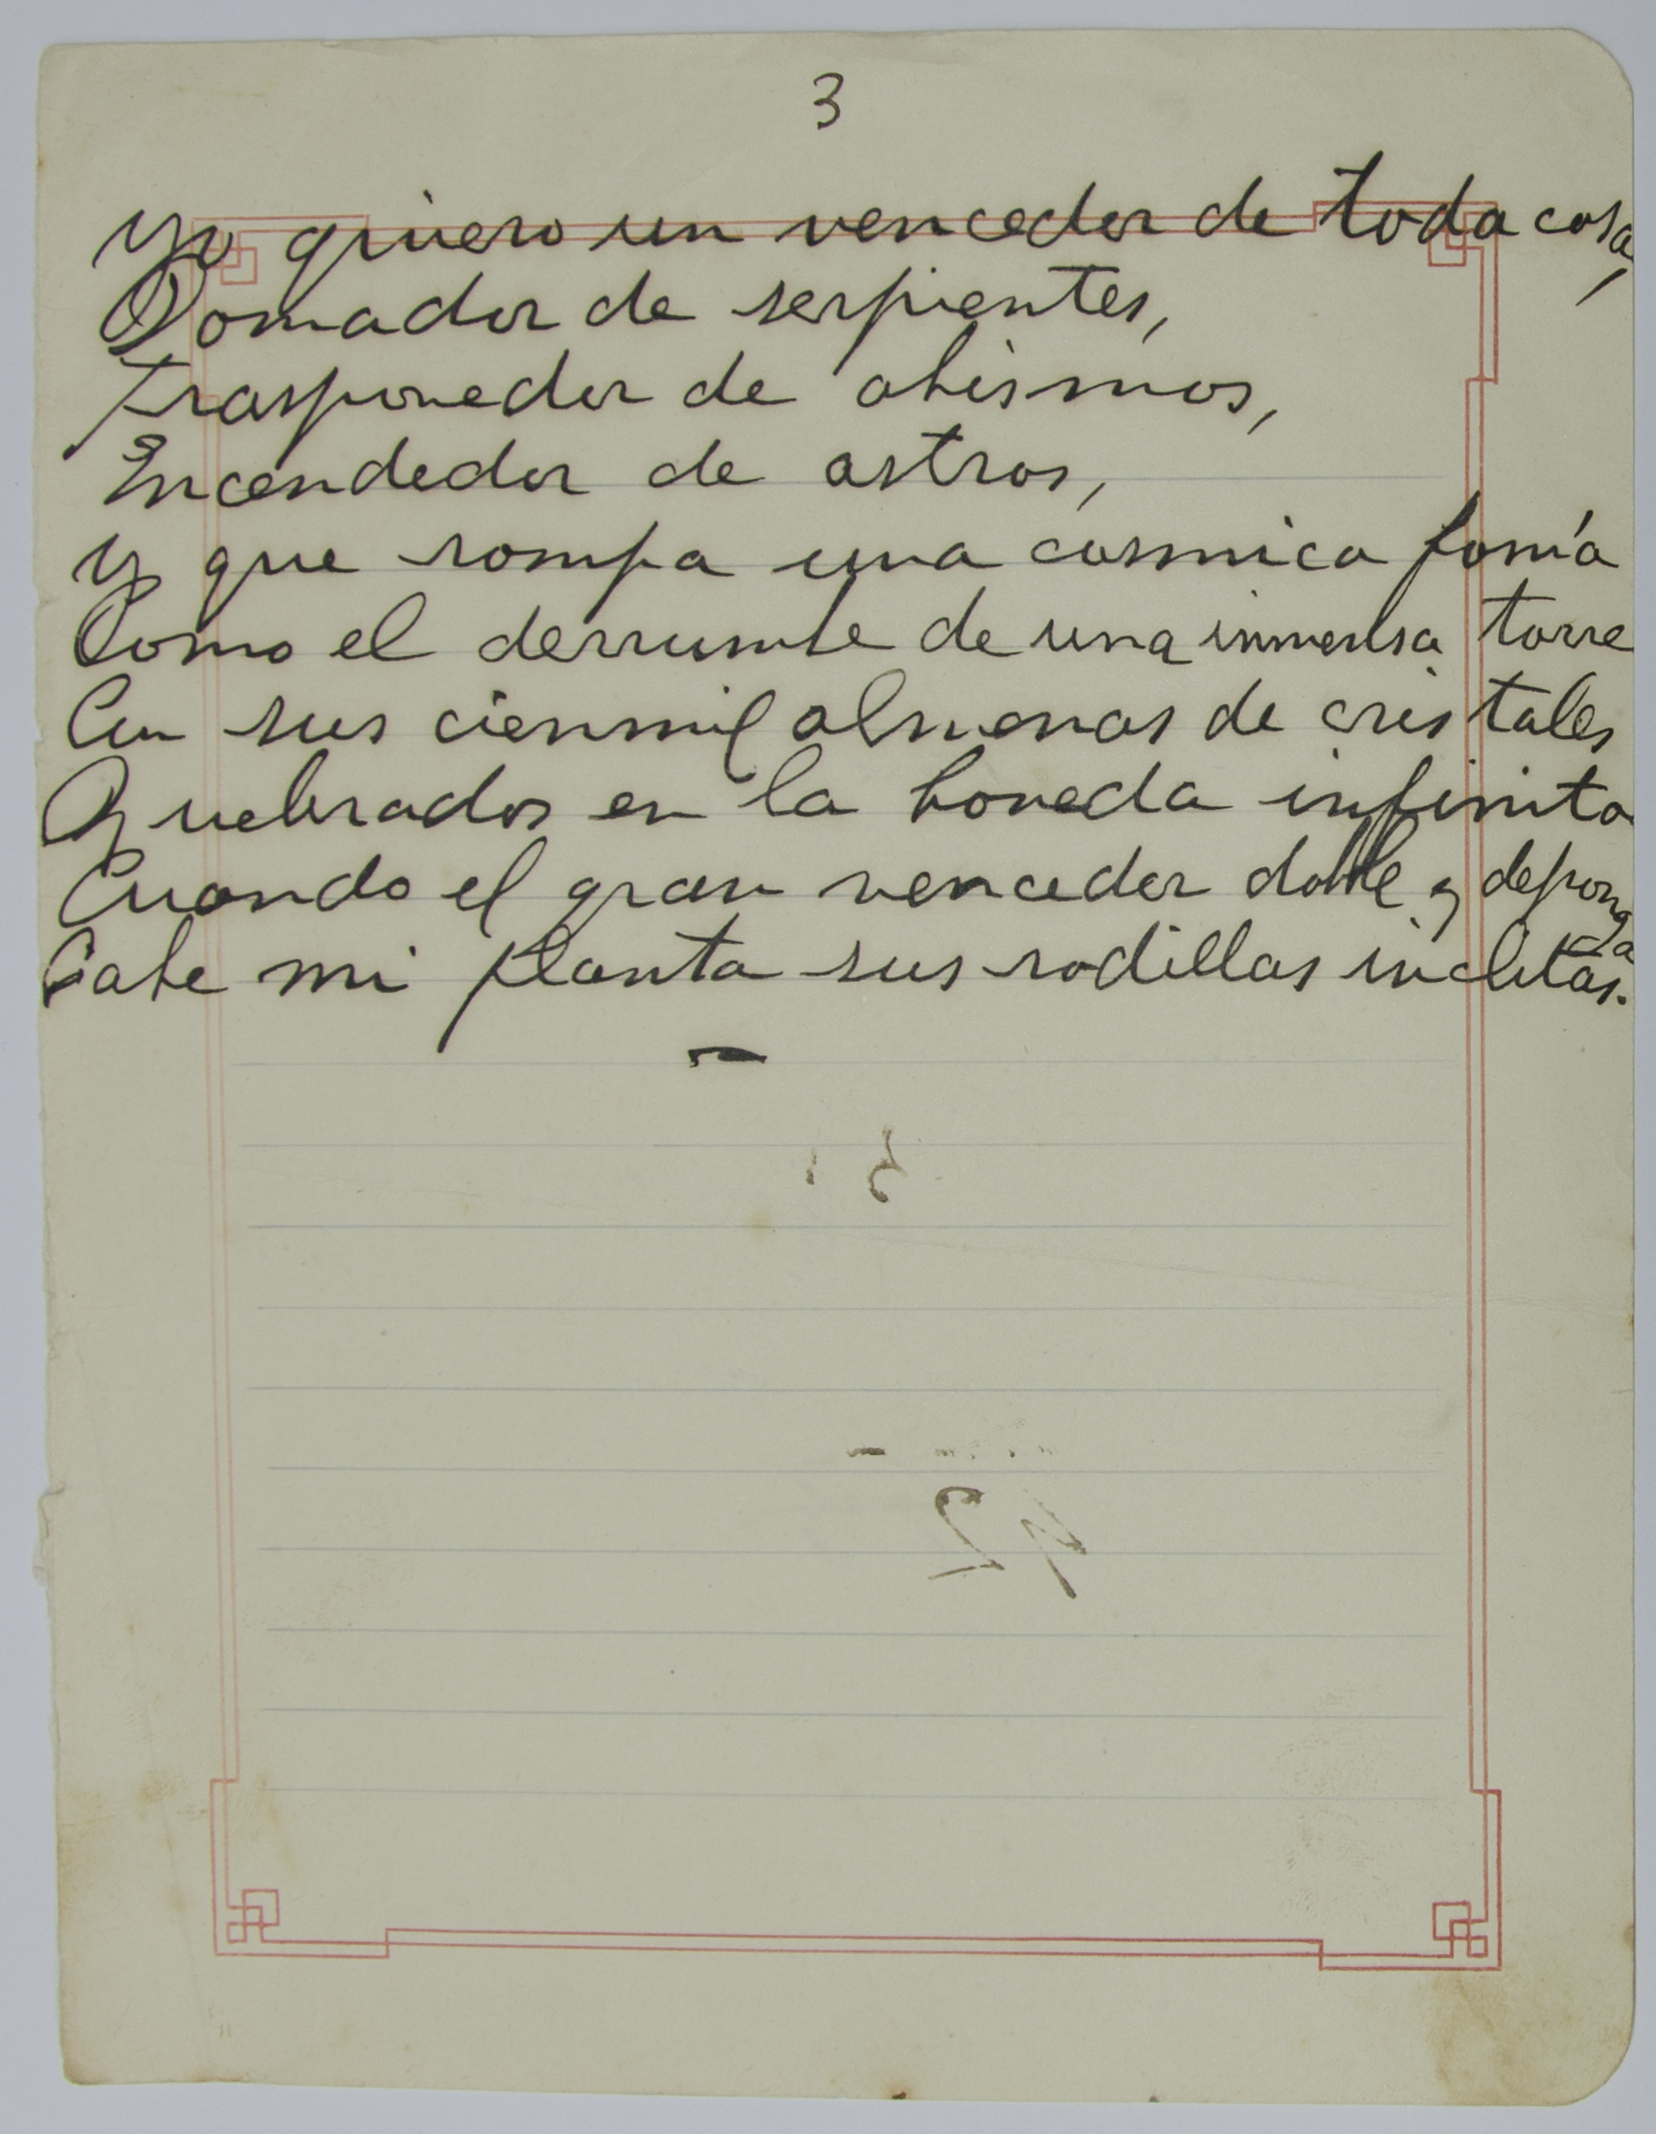 3
Yo quiero un vencedor de toda cosa,
Domador de serpientes,
Trasponedor de abismos,
Encendedor de astros,
Y que rompa una cosmica fonía
Como el derrumbe de una inmensa torre
Con sus cienmil almenas de cristales
Quebrados en la boveda infinita
Cuando el gran vencedor doble y deponga
Cabe mi planta sus rodillas inclitas.